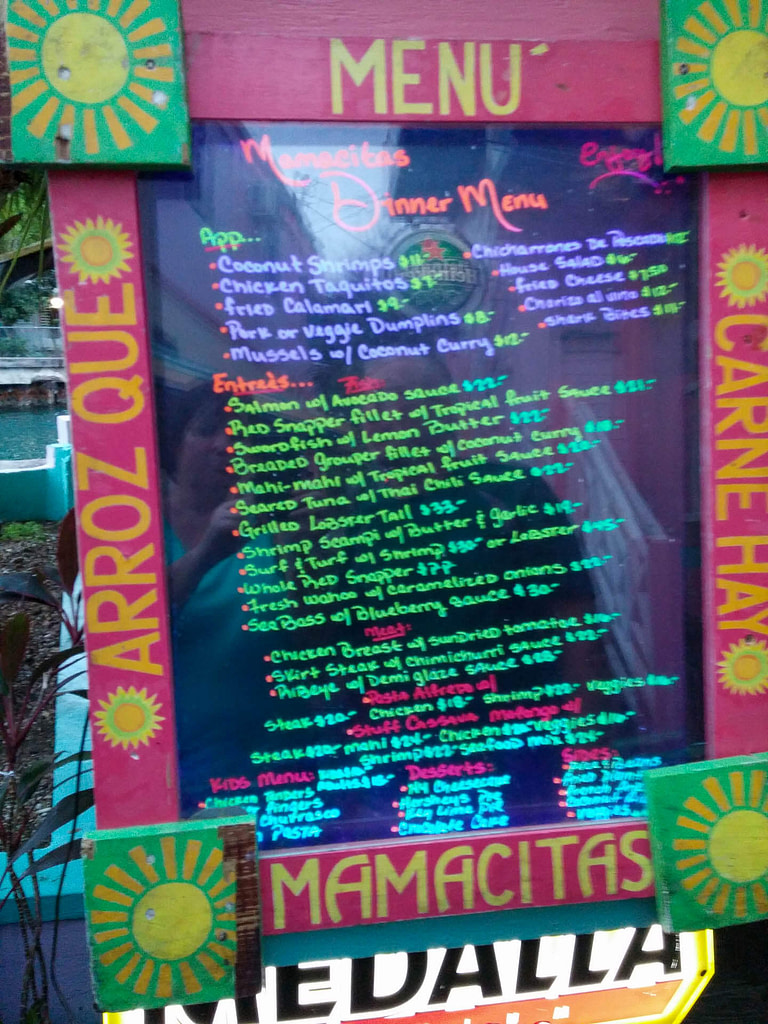 MENU
Mamacitas
Enjoy!
Dinner Menu
App...
•Coconut Shrimps $11-
•Chicken Taquitos $9-
•Fried Calamari $9-
•Pork or Veggie Dumplins $8-
•Mussels w/ Coconut Curry $12-
•Chicharrones De Pescado $12
•House Salad $6-
•Fried Cheese $7.50
•Chorizo al vino $12-
•Shark Bites $11-
Entreès...
Fish:
•Salmon w/ Avocado sauce $22-
•Red Snapper fillet w/ Tropical fruit Sauce $21-
•Swordfish w/ Lemon Butter $22-
•Breaded Grouper fillet w/ Coconut Curry $19-
•Mahi-mahi w/ Tropical fruit Sauce $20-
•Seared Tuna w/ Thai Chili Sauce $22-
•Grilled Lobster Tail $33-
•Shrimp Scampi w/ Butter & garlic $19-
•Surf & Turf w/ Shrimp $30- or Lobster $45-
•Whole Red Snapper $PP
•Fresh Wahoo w/ Caramelized onions $22-
•Sea Bass w/ Blueberry Sauce $30-
Meat:
•Chicken Breast w/ sundried tomatoe
•Skirt Steak w/ Chimichurri sauce $22-
•Ribeye w/ Demi glaze sauce $28-
•Pasta Alfredo w/
Steak $20- Chicken $18- Shrimp $22- Veggies
•Stuff Cassava Mofongo w/
Steak $20- mahi Chicken Veggies
Shrimp $22- Seafood mix $25-
Kids Menu:
Chicken
Fingers
Churrasco
Pasta
Desserts:
•NY Cheesecake
•Hersheys Pie
•Key Lime Pie
•Chocolate Cake
Sides:
ARROZ QUE
CARNE HAY
MAMACITAS
MEDALLA